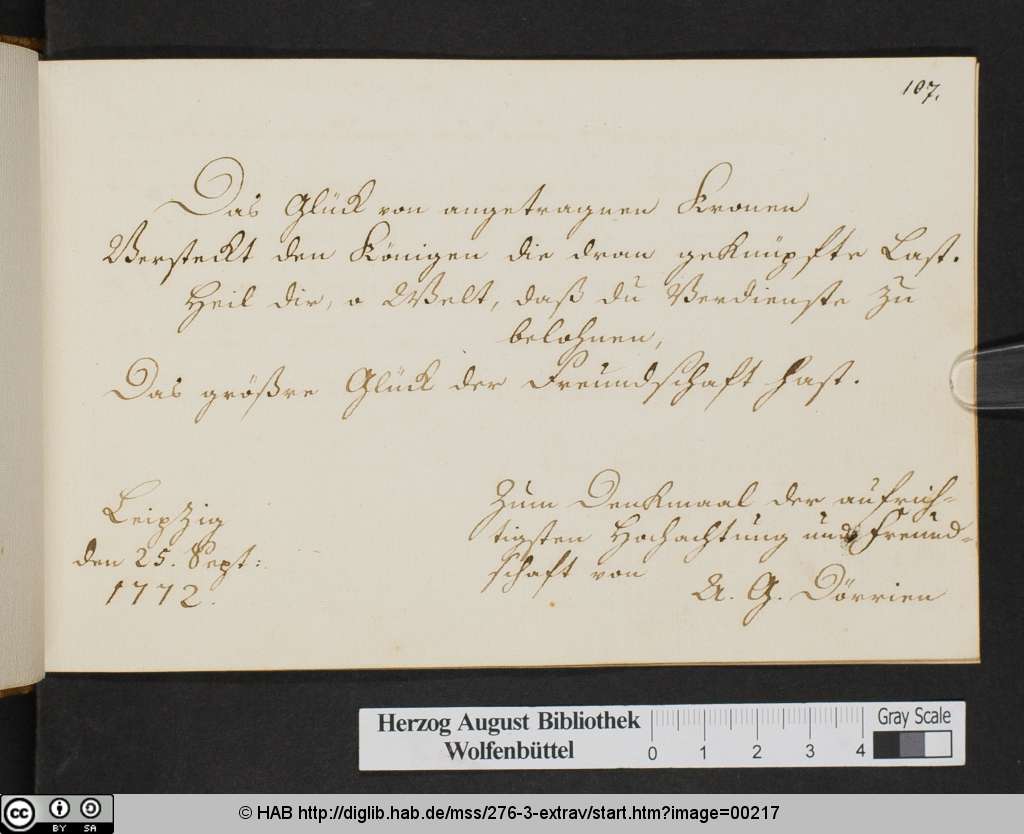 107.
Das Glück von angetragnen Kronen
Versteckt den Königen die dran geknüpfte Last.
Heil dir, o Welt, daß du Verdienste zu
belohnen,
Das größre Glück der Freundschaft hast.
Leipzig
den 25. Sept:
1772.
Zum Denkmaal der aufrich-
tigsten Hochachtung und Freund-
schaft von
A. G. Dörrien
Herzog August Bibliothek
Wolfenbüttel
0 1 2 3 4
Gray Scale
cc BY SA
© HAB http://diglib.hab.de/mss/276-3-extrav/start.htm?image=00217